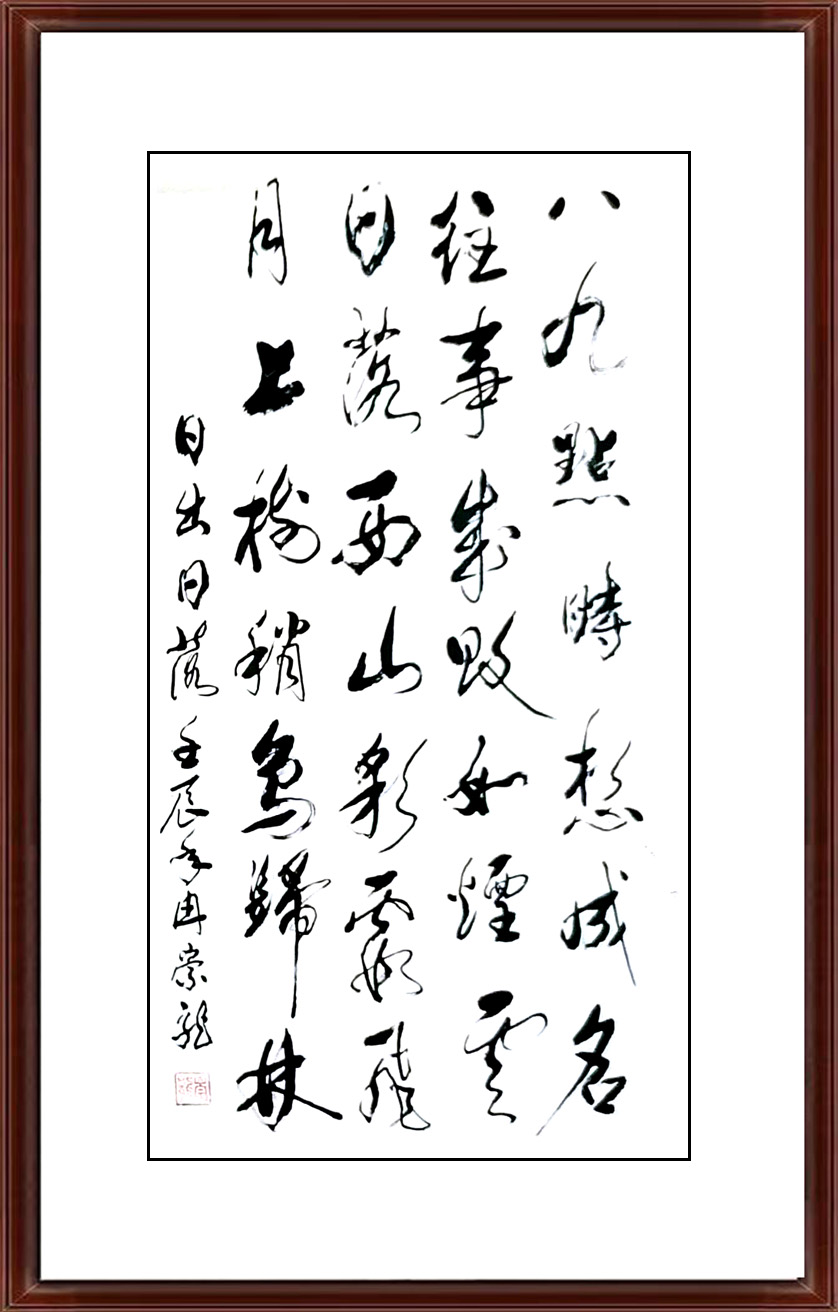 八九點時想成名
往事成敗如煙雲
日落西山彩霞飛
月上樹稍鳥歸林
日出日落 壬辰年冉崇龍